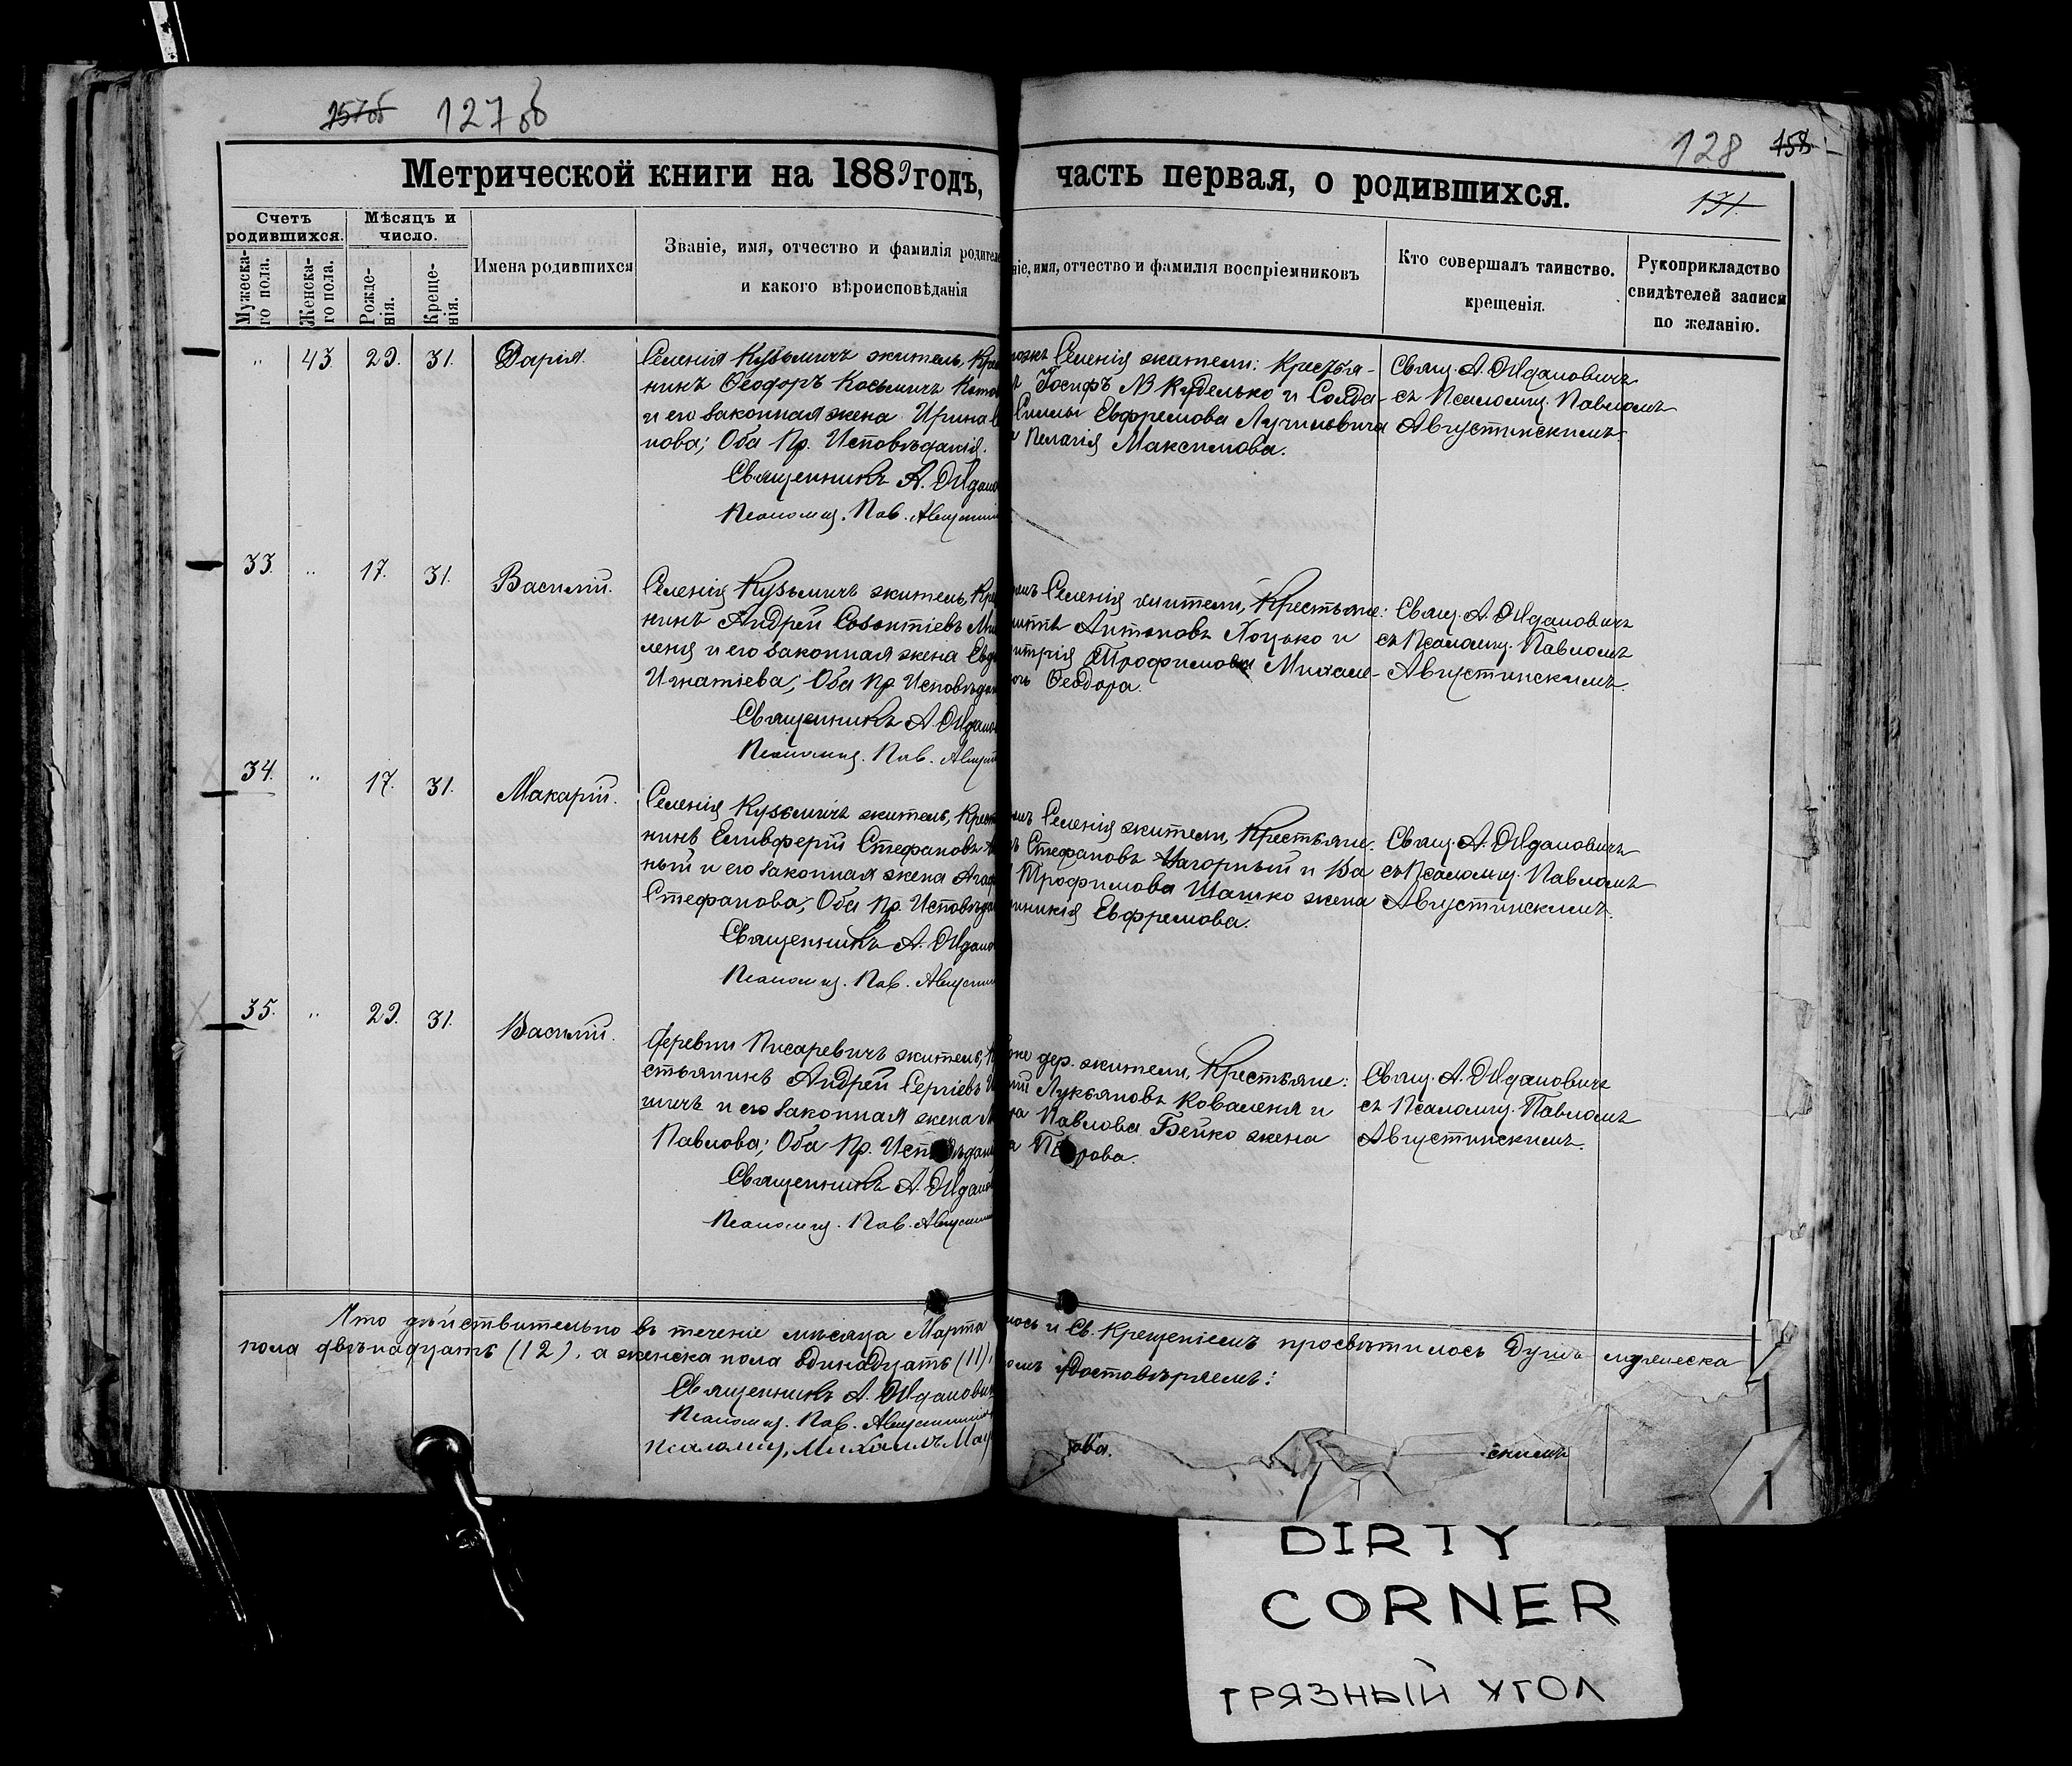 157об 127об
128 158
131.
Метрической книги на 1889 годъ, часть первая, о родившихся.
Счетъ родившихся.
Мужеска-го пола.
Женска-го пола.
Мѣсяцъ и число.
Рожде-нія.
Креще-нія.
Имена родившихся
Званіе, имя, отчество и фамилія родителе
и какого вѣроисповѣданія
ніе, имя, отчество и фамилія воспріемниковъ
Кто совершалъ таинство.
крещенія.
Рукоприкладство
свидѣтелей записи
по желанію.
" 43 29. 31. Дарія.
Селенія Кузьмичъ житель, Крес
нинъ Ѳеодоръ Косьмичъ
и его законная жена Ирина
пова; Оба Пр. Исповѣданія.
Священникъ А.
Псаломщ. Пав. Августин
Селенія жители: Крестья-
Іосифъ Куделько и Солда-
Евфремова
Пелагія Максимова.
Свящ. А.
съ Псаломщ. Павломъ
Августинскимъ
33. " 17. 31. Василій.
Селенія Кузьмичъ житель, Кре
нинъ Андрей Созонтіевъ
леня и его законная жена Евд
Игнатіева; Оба Пр Исповѣдан
Священникъ А.
Псаломщ. Пав. Августи
Селенія жители, Крестьяне:
Антоновъ и
Трофимова Михале-
Ѳеодора.
Свящ. А.
съ Псаломщ. Павломъ
Августинскимъ.
34. " 17. 31. Макарій.
Селенія Кузьмичъ житель, Крест
нинъ Елевферій Стефановъ
ный и его законная жена Агаф
Стефанова; Оба Пр. Исповѣда
Священникъ А.
Псаломщ. Пав. Августин
Селенія жители, Крестьяне.
Стефановъ Нагорный и Ва
Трофимова Шашко жена
Евфремова.
Свящ. А.
съ Псаломщ. Павломъ
Августинскимъ.
35. " 29. 31. Василій.
Деревни Писаревичъ житель, К
стьянинъ Андрей Сергіевъ
шичъ и его законная жена М
Павлова; Оба Пр. Исповѣдан
Священникъ А.
Псаломщ. Пав. Августин
дер. жители, Крестьяне:
Лукьяновъ Коваленя и
Павлова Бейко жена
Петрова.
Свящ. А.
съ Псаломщ. Павломъ
Августинскимъ.
Что дѣйствительно въ теченіе мѣсяца Марта лось и Св. Крещеніемъ просвѣтилось Душъ мужеска
пола двѣнадцать (12), а женска пола одинадцать (11), омъ удостовѣряемъ:
Священникъ А.
Псаломщ. Пав. Августинскій
Псаломщ. Михаилъ
ова.
скимъ
1
DIRTY
CORNER
ГРЯЗНЫЙ УГОЛ